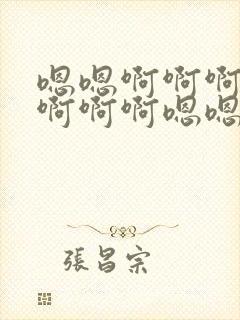 嗯嗯啊啊啊
啊啊啊嗯嗯
張昌宗